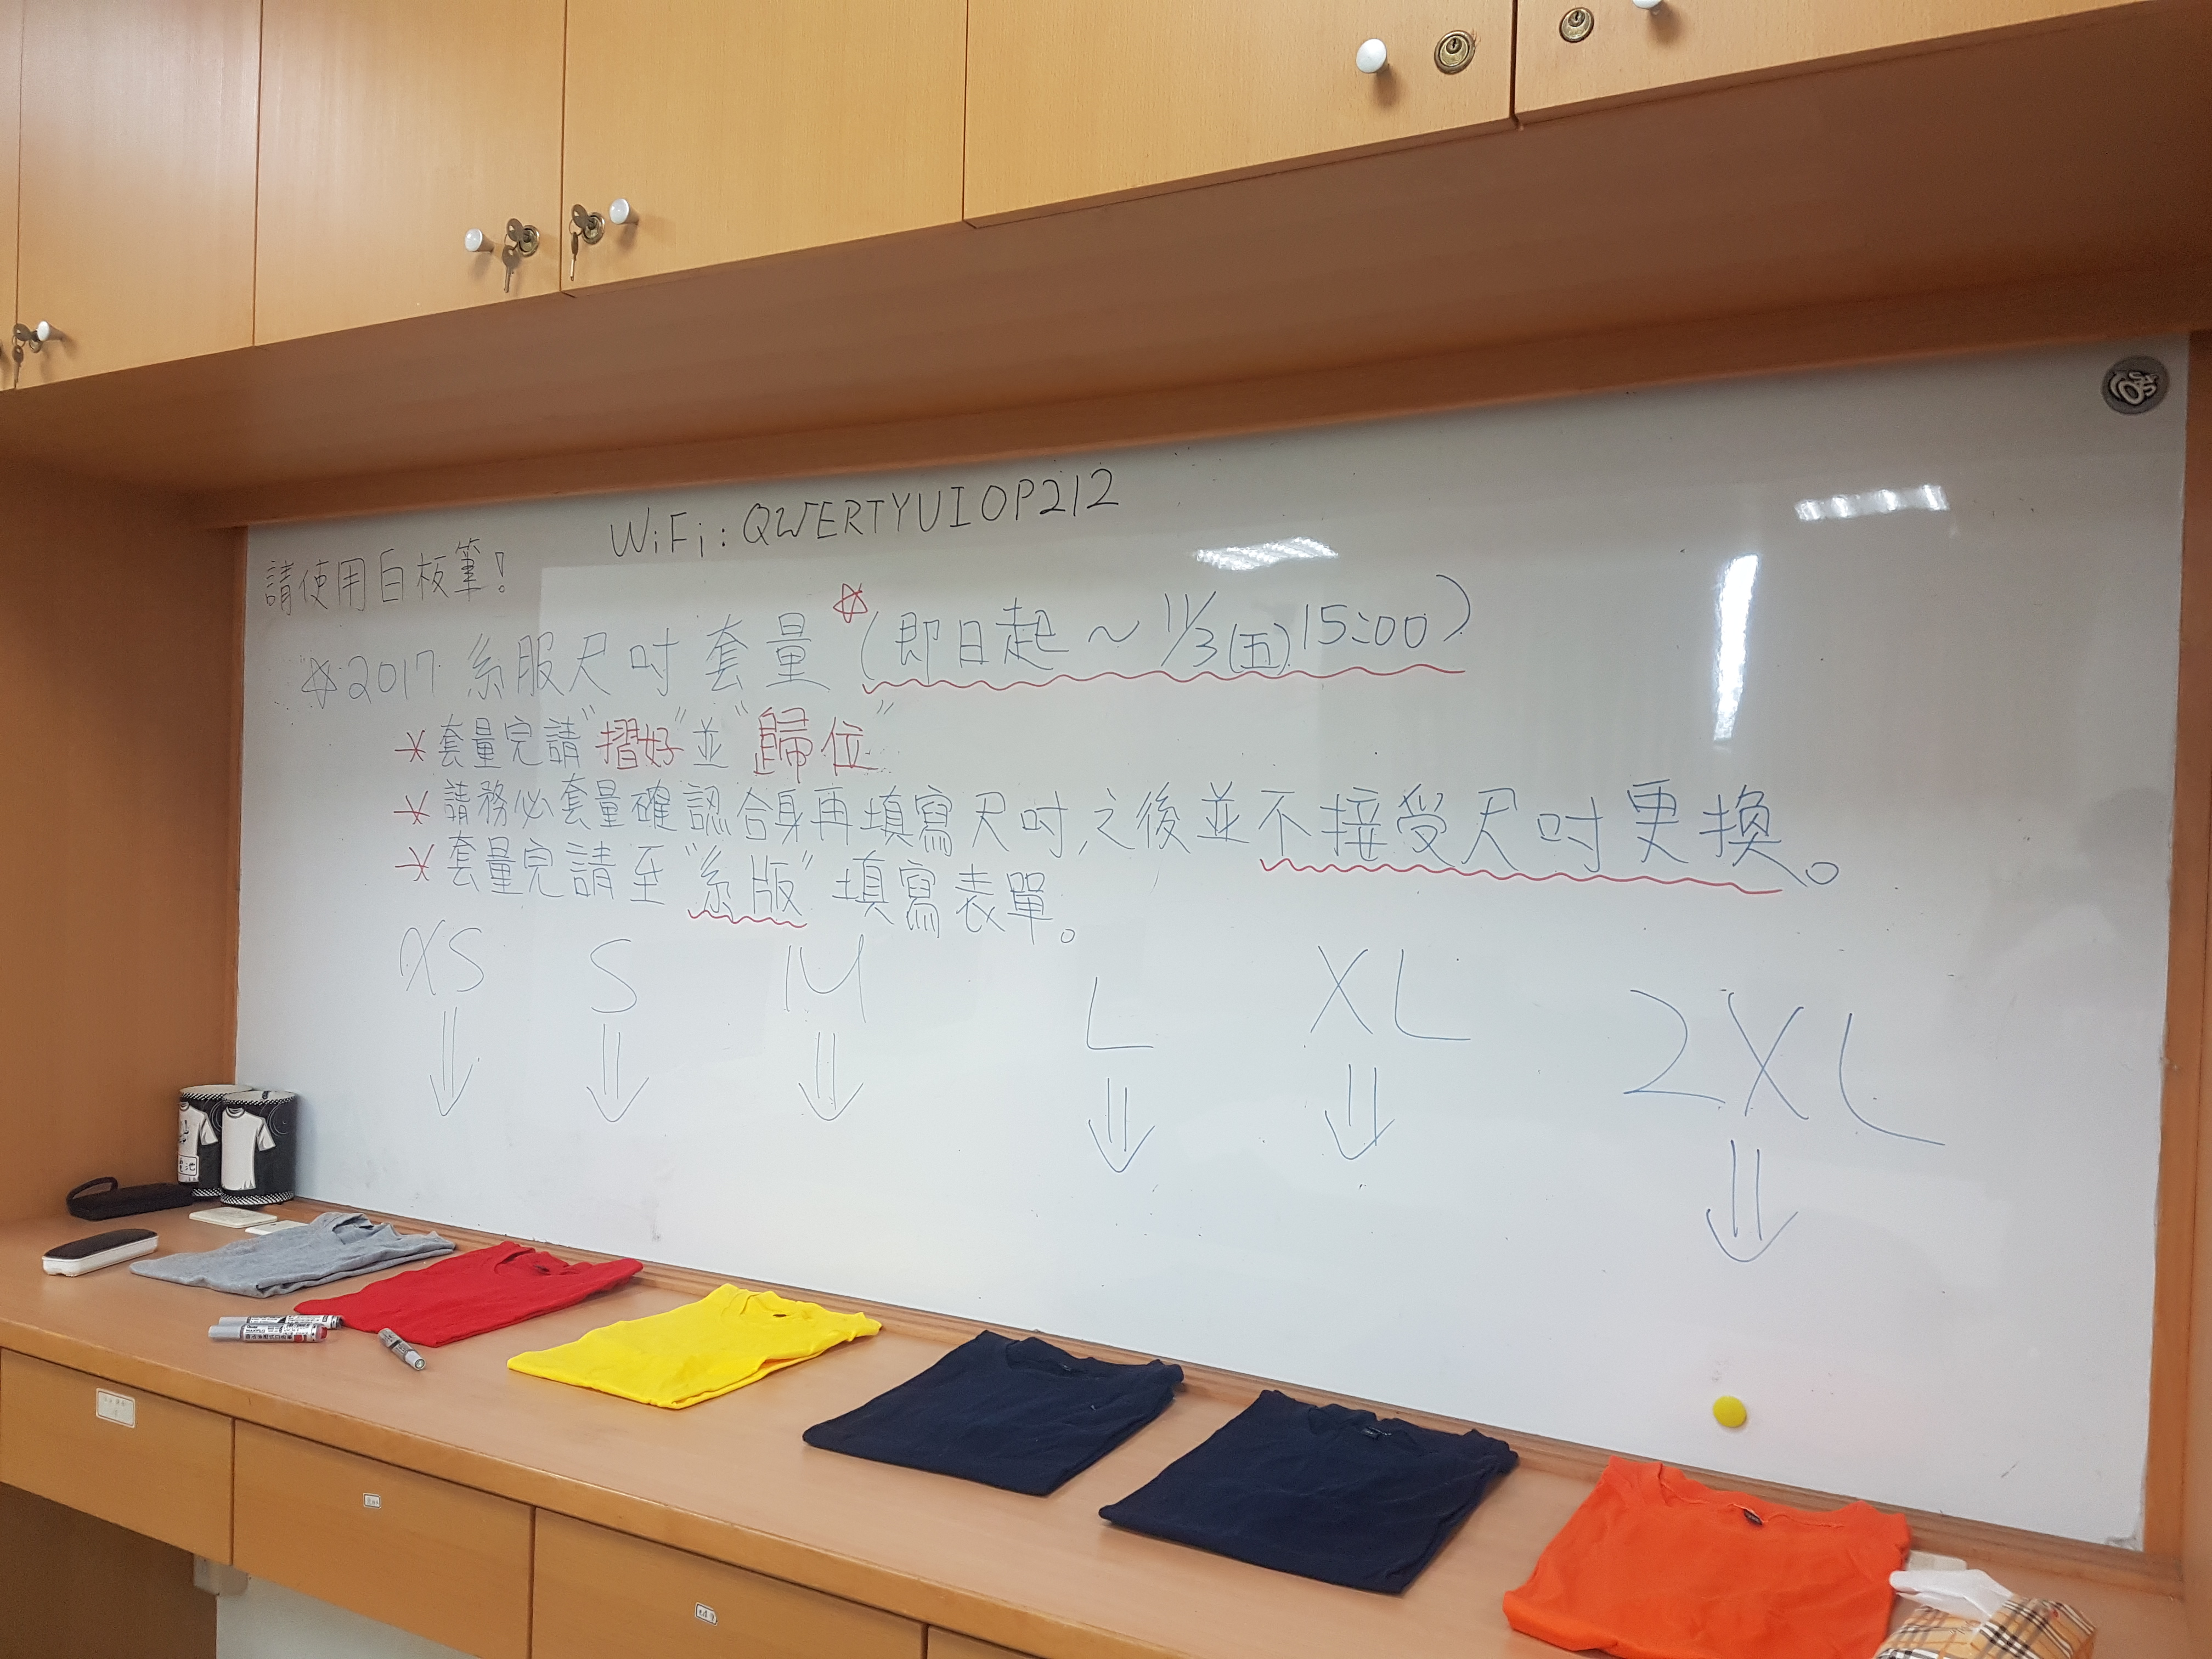 WiFi : QWERTYUIOP212
請使用白板筆!
☆2017 系服尺吋套量☆(即日起~11/3(五)15:00)
*套量完請"摺好"並"歸位"
*請務必套量確認合身再填寫尺吋,之後並不接受尺吋更換。
*套量完請至"系版"填寫表單。
XS S M L XL 2XL